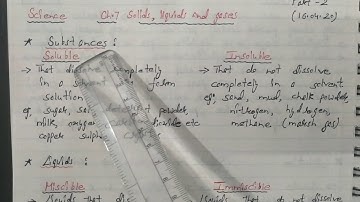 Part-2
Science Ch-7 Solids, liquids and gases (16.04.20)
* Substances :
Soluble Insoluble
→ That completely → That do not dissolve
in a form completely in a solvent
solution. eg. sand, mud, chalk powder,
eg. sugar, powder, nitrogen, hydrogen,
milk, oxygen etc methane (marsh gas)
copper sulph
* Liquids :
Miscible Immiscible
→ liquids that → liquids that do not dissolve